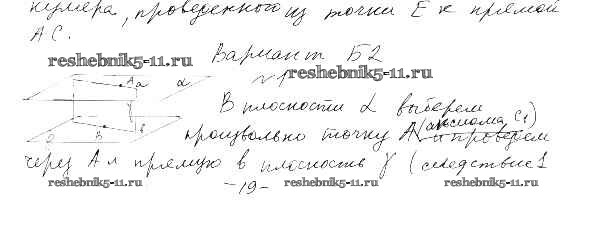 нуляра, проведенного из точки E к прямой
AC.
Вариант Б2
reshebnik5-11.ru
reshebnik5-11.ru
№1
A a α
В плоскости α выберем
B
произвольно точку A (аксиома C1) и проведем
через A и прямую в плоскость γ (следствие 1
reshebnik5-11.ru
-19-
reshebnik5-11.ru
reshebnik5-11.ru